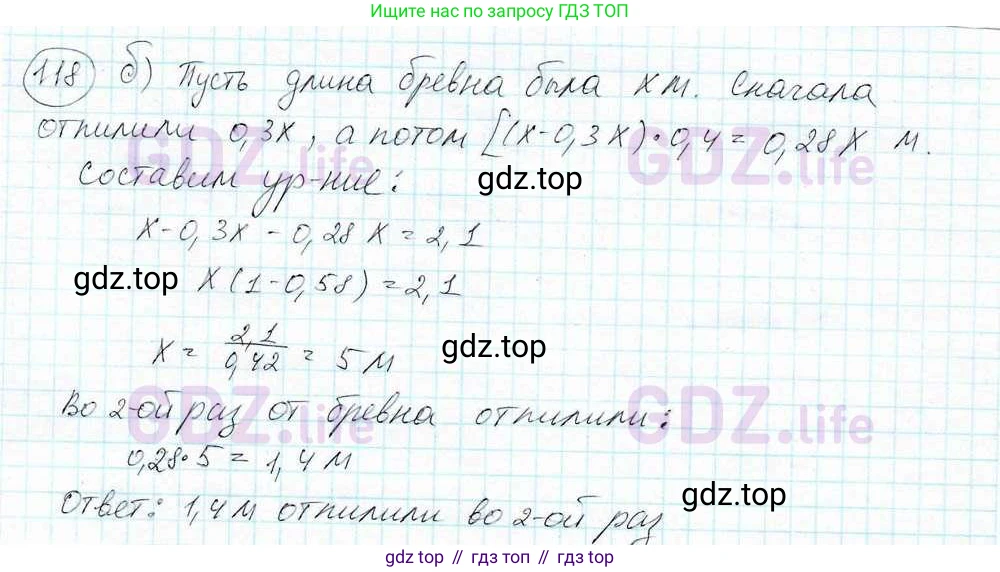 Ищите нас по запросу ГДЗ ТОП
118 б) Пусть длина бревна была х м. Сначала
отпилили 0,3х, а потом [(х-0,3х)•0,4=0,28х м.
GDZ.life GDZ.life
Составим ур-ние:
gdz.top
х-0,3х-0,28х=2,1
gdz.top х(1-0,58)=2,1
х = 2,1/0,42 = 5 м
gdz.top
Во 2-ой раз от бревна отпилили:
GDZ.life GDZ.life
0,28•5=1,4 м
gdz.top
Ответ: 1,4 м отпилили во 2-ой раз
gdz top // гдз топ // gdz.top